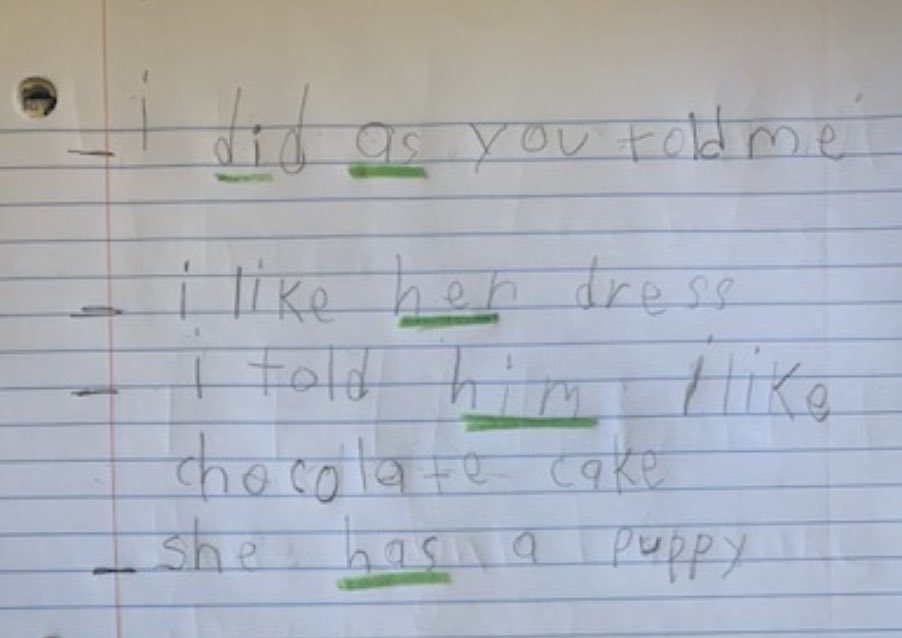 - i did as you told me
- i like her dress
- i told him i like
chocolate cake
- she has a puppy